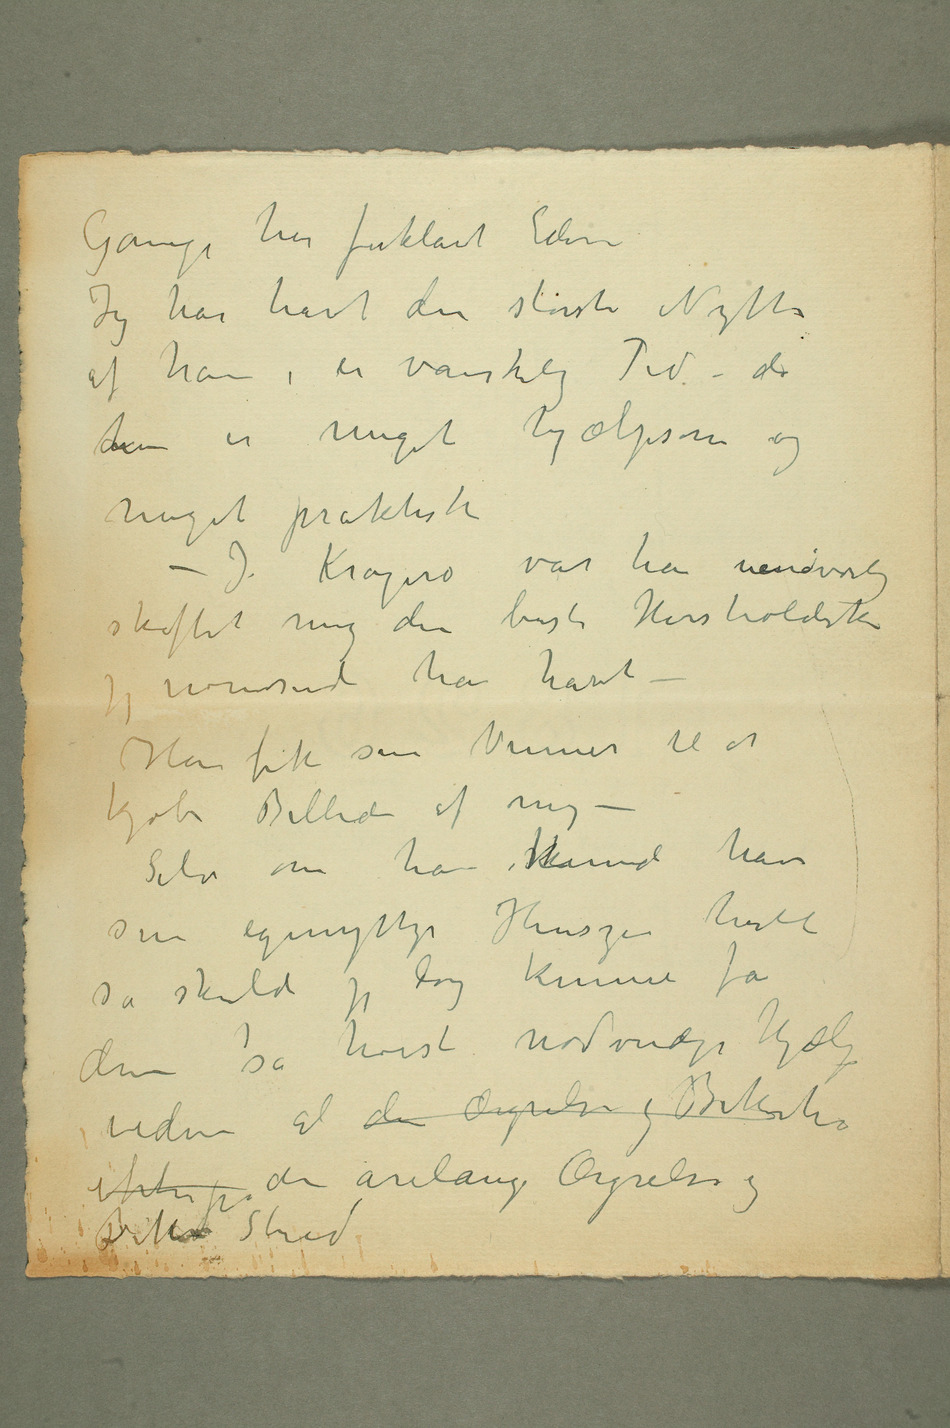 Gange har forklart Eder
Jeg har havt den største Nytte
af ham i en vanskelig Tid – da
han er meget hjælpsom og
meget praktisk
– I Kragerø var han uundværlig
skaffet mig den beste Husholderske
jeg nonsinde har havt –
Han fik sine Venner til at
kjøbe Billeder af mig –
Selv om han kunde have
sine egennyttige Hensyn hertil
så skulde jeg dog kunne få
den så høist nødvendige Hjælp
uden al den Ærgrelse og
efterpå den årelange Ærgrelse og
Strid